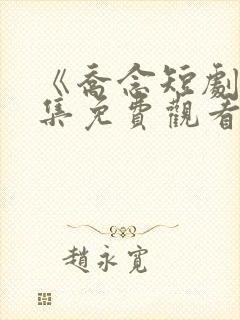 《喬念短劇
集免費觀看
趙永寬